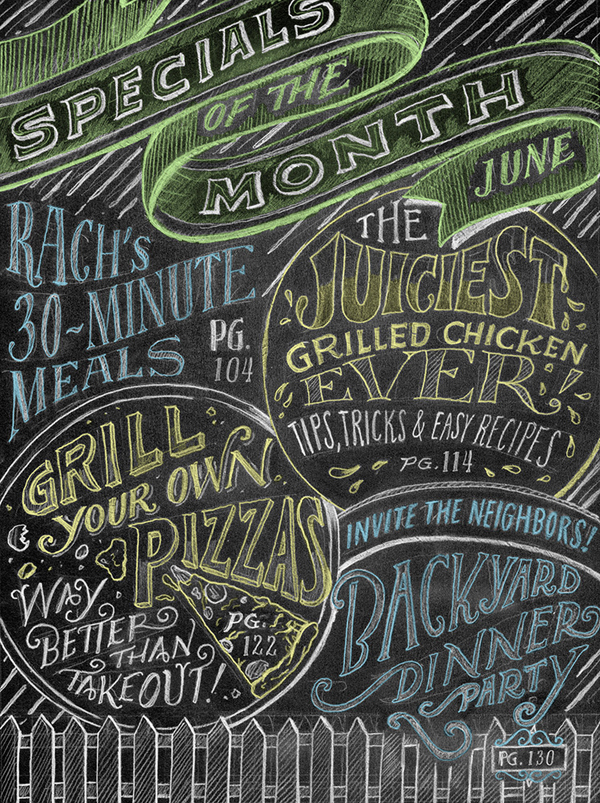 SPECIALS
OF THE
MONTH
JUNE
RACH'S
30-MINUTE
MEALS
PG.
104
THE
JUICIEST
GRILLED CHICKEN
EVER!
TIPS, TRICKS & EASY RECIPES
PG. 114
GRILL
YOUR OWN
PIZZAS
WAY
BETTER
THAN
TAKEOUT!
PG.
122
INVITE THE NEIGHBORS!
BACKYARD
DINNER
PARTY
PG. 130